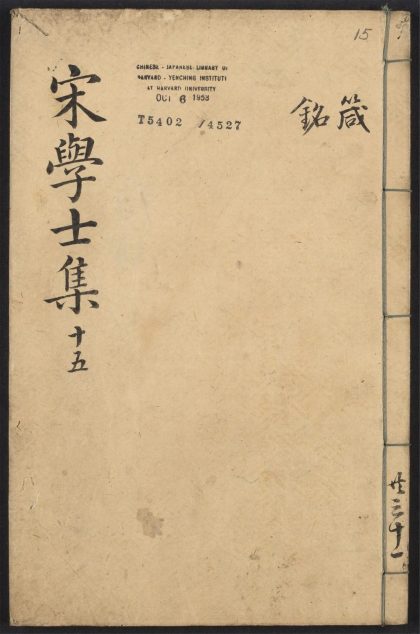 15
CHINESE - JAPANESE LIBRARY OF
HARVARD - YENCHING INSTITUTE
AT HARVARD UNIVERSITY
OCT 6 1953
T5402 /4527
箴銘
宋學士集 十五
三十一